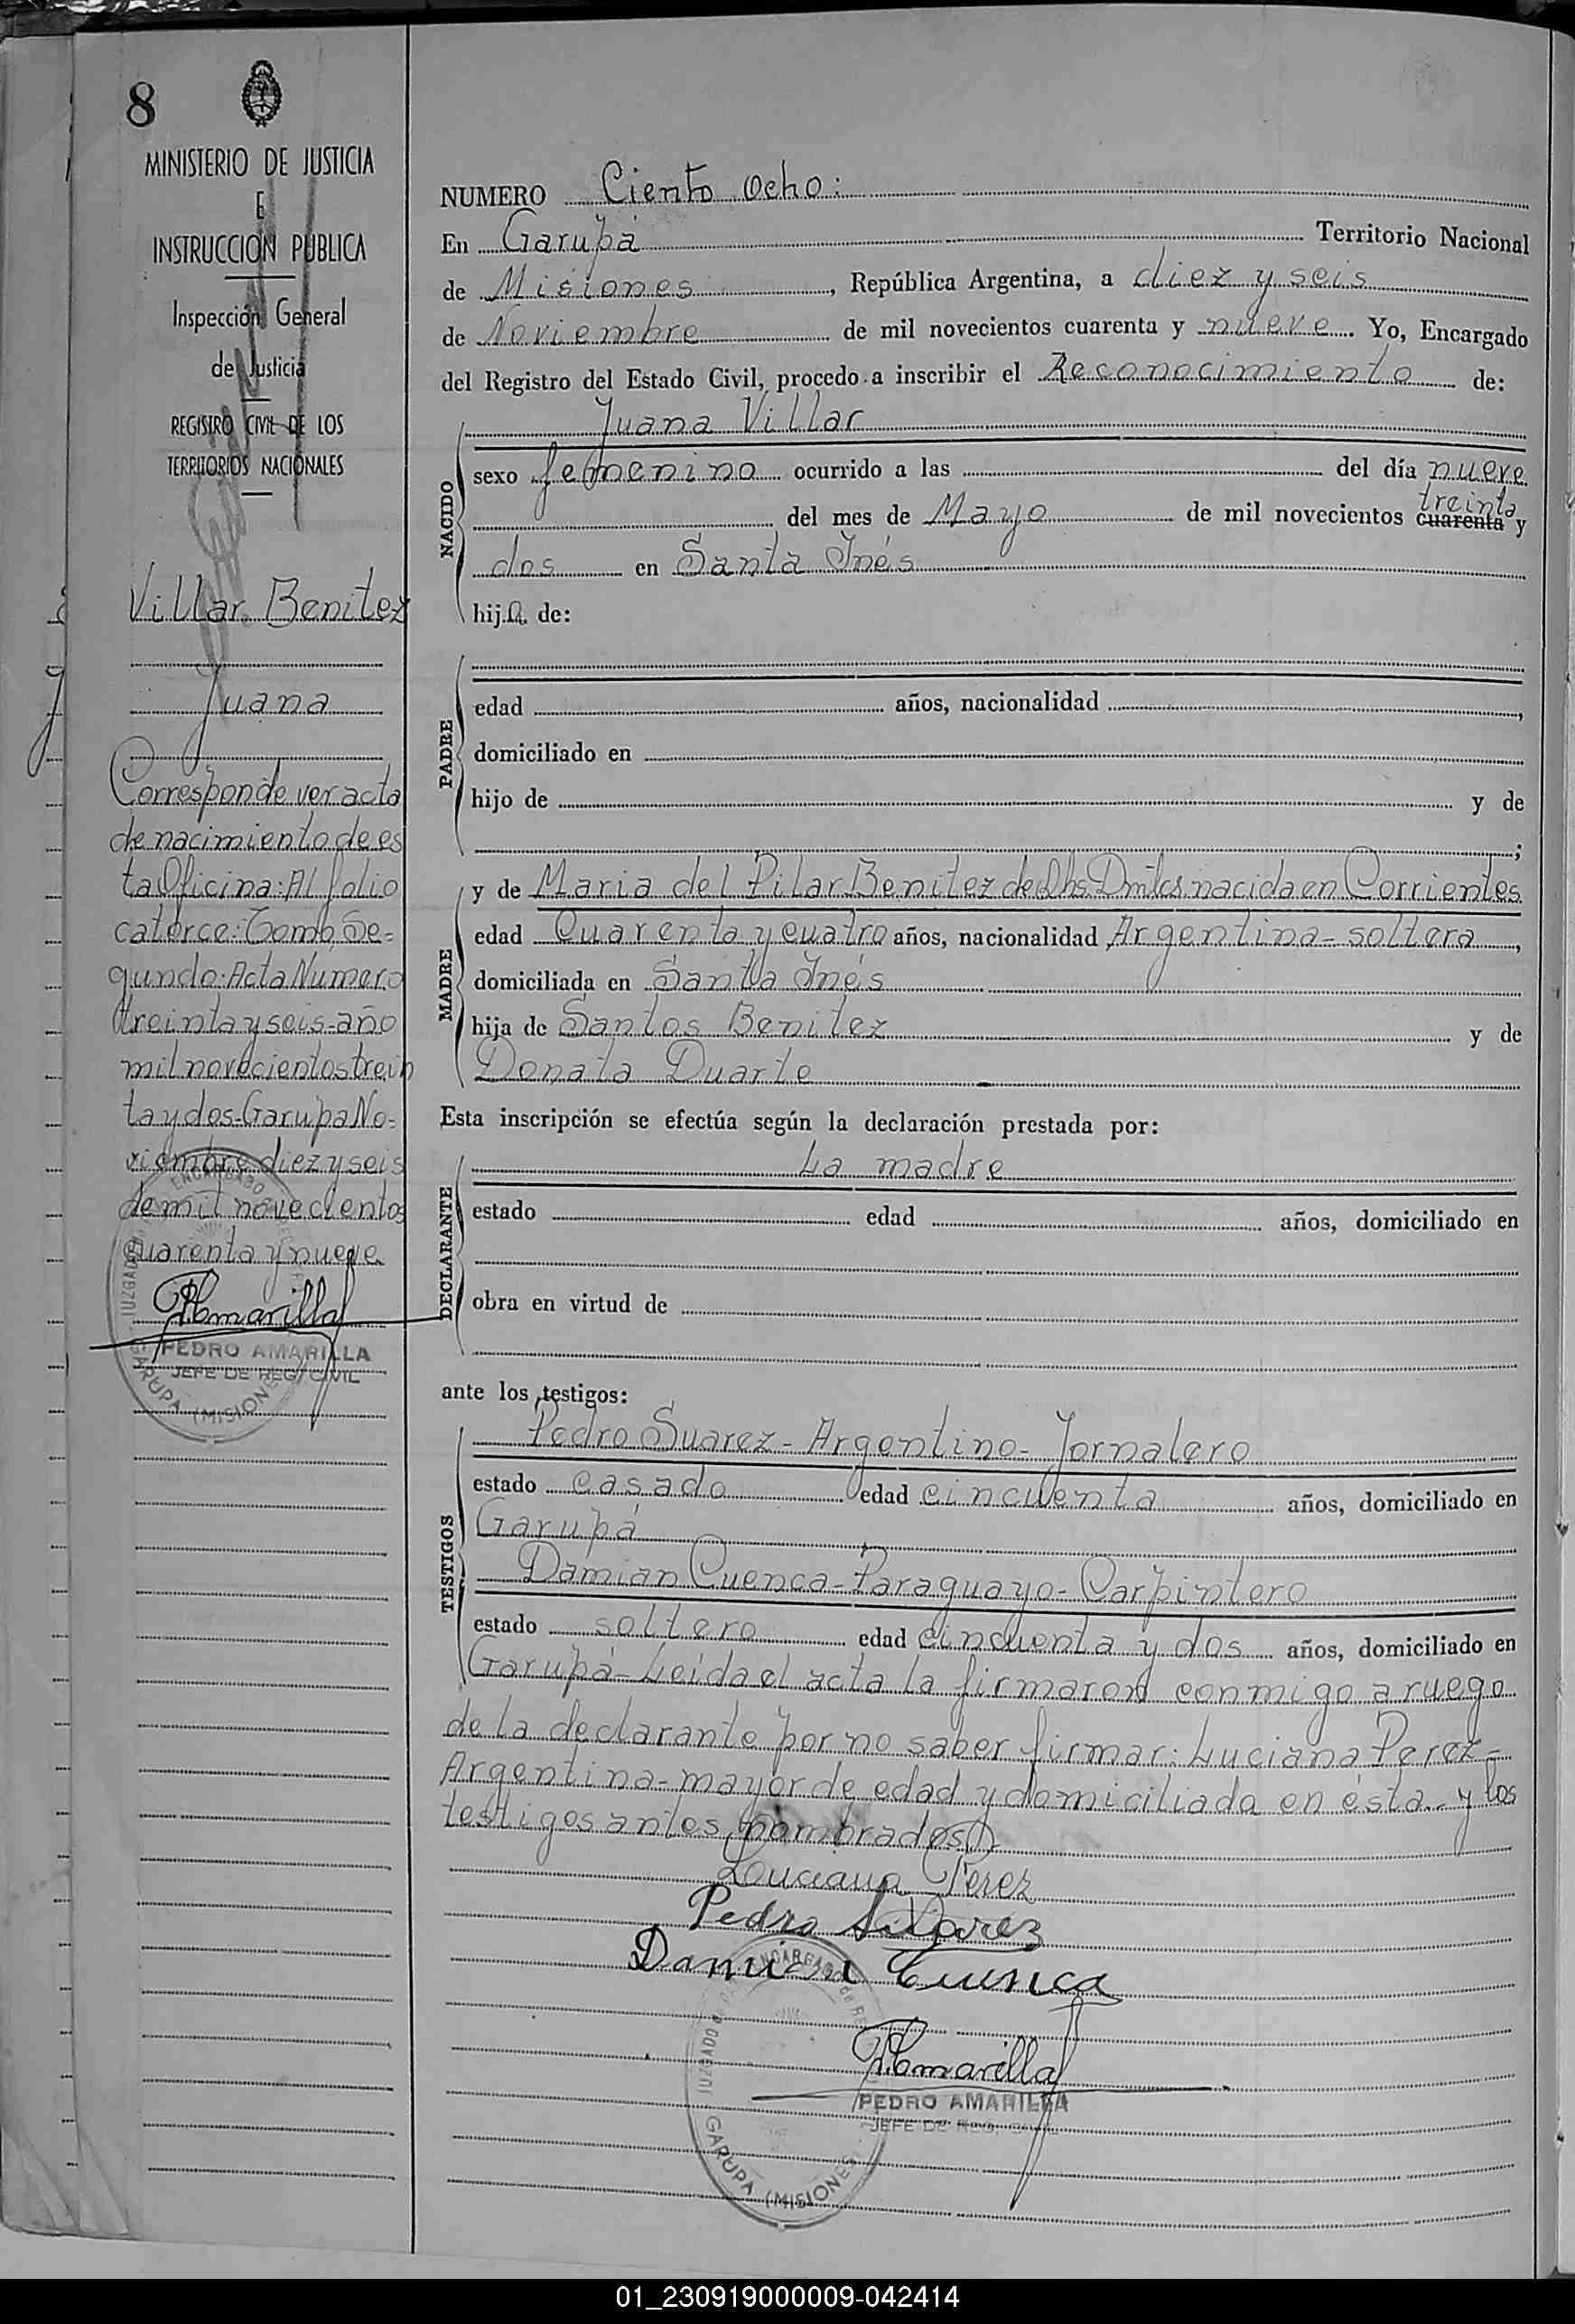 8
MINISTERIO DE JUSTICIA
E
INSTRUCCION PUBLICA
Inspección General
de Justicia
REGISTRO CIVIL DE LOS
TERRITORIOS NACIONALES
Villar Benitez
Juana
Corresponde ver acta
de nacimiento de es
ta Oficina: Al folio
catorce: Tomo Se=
gundo: Acta Número
treinta y seis-año
mil novecientos trein
ta y dos-Garupa No=
viembre diez y seis
de mil novecientos
cuarenta y nueve
PAmarilla
PEDRO AMARILLA
JEFE DE REG. CIVIL
JUZGADO ENCARGADO
GARUPA (MISIONES)
NUMERO Ciento Ocho:
En Garupá Territorio Nacional
de Misiones, República Argentina, a diez y seis
de Noviembre de mil novecientos cuarenta y nueve. Yo, Encargado
del Registro del Estado Civil, procedo a inscribir el Reconocimiento de:
NACIDO
Juana Villar
sexo femenino ocurrido a las del día nueve
del mes de Mayo de mil novecientos cuarenta treinta y
dos en Santa Inés
hija de:
PADRE
edad años, nacionalidad ,
domiciliado en
hijo de y de
;
MADRE
y de Maria del Pilar Benitez de Qhs. Dmtcs. nacida en Corrientes
edad Cuarenta y cuatro años, nacionalidad Argentina-soltera,
domiciliada en Santa Inés
hija de Santos Benitez y de
Donata Duarte
Esta inscripción se efectúa según la declaración prestada por:
DECLARANTE
La madre
estado edad años, domiciliado en
obra en virtud de
ante los testigos:
TESTIGOS
Pedro Suarez-Argentino-Jornalero
estado casado edad cincuenta años, domiciliado en
Garupá
Damian Cuenca-Paraguayo-Carpintero
estado soltero edad cincuenta y dos años, domiciliado en
Garupá-Leida el acta la firmaron conmigo a ruego
de la declarante por no saber firmar: Luciana Perez-
Argentina-mayor de edad y domiciliada en ésta-y los
testigos antes nombrados
Louciana Perez
Pedro Suarez
Damian Cuenca
PAmarilla
PEDRO AMARILLA
JEFE DE REG. CIVIL
JUZGADO ENCARGADO
GARUPA (MISIONES)
01_230919000009-042414